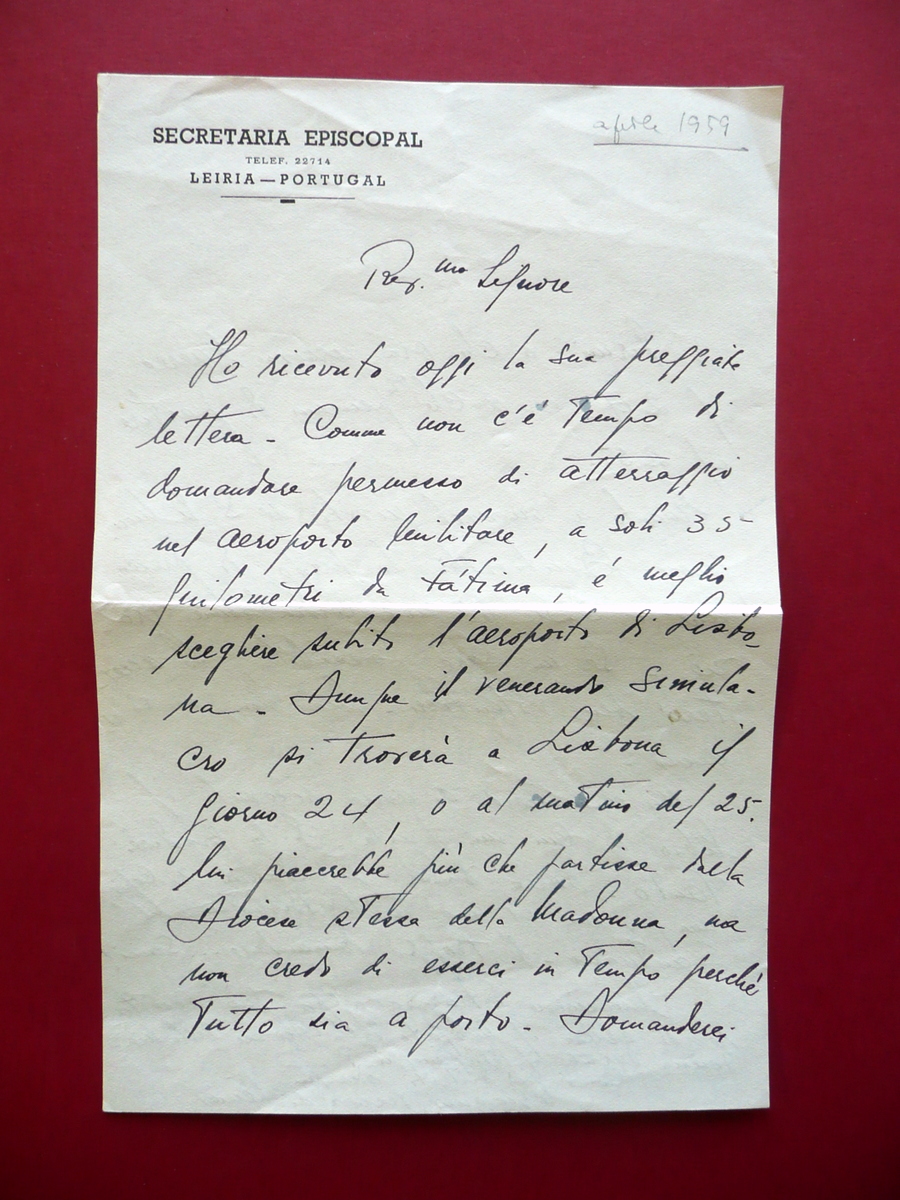 SECRETARIA EPISCOPAL
TELEF. 22714
LEIRIA — PORTUGAL
aprile 1959
Rev.mo Signore
Ho ricevuto oggi la sua preggiata
lettera - Comme non c'é tempo di
domandare permesso di atterraggio
nel aeroporto militare, a soli 35
quilometri da Fátima, é meglio
scegliere subito l'aeroporto di Lisbo-
na - Dunque il venerando simula-
cro si troverà a Lisbona il
giorno 24, o al matino del 25.
Mi piacerebbe più che partisse dalla
Diocese stessa della Madonna, ma
non credo di esserci in tempo perché
tutto sia a posto - Domanderei